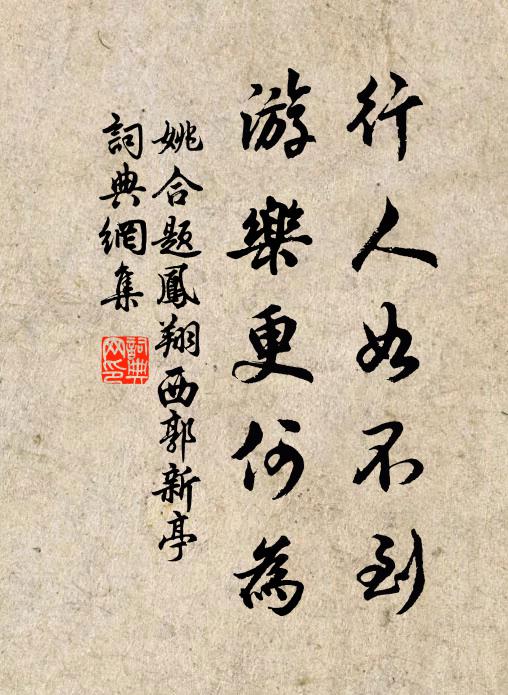 行人如不到
游樂更何為
姚合題鳳翔西郭新亭
詞典網集
詞典網印